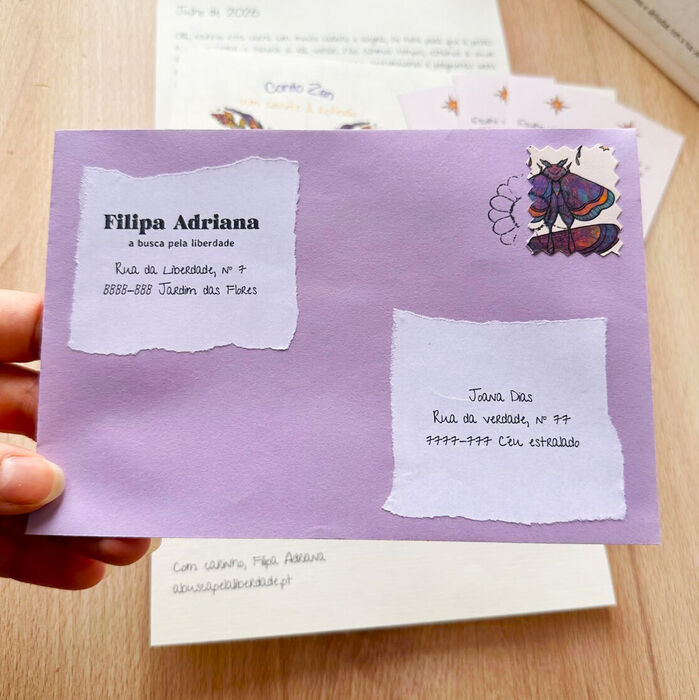 Julho de 2025
Conto Zen
Filipa Adriana
a busca pela liberdade
Rua da Liberdade, nº 7
8888-888 Jardim das Flores
Joana Dias
Rua da verdade, nº 77
7777-777 Céu estralado
Com carinho, Filipa Adriana
abuscapelaliberdade.pt